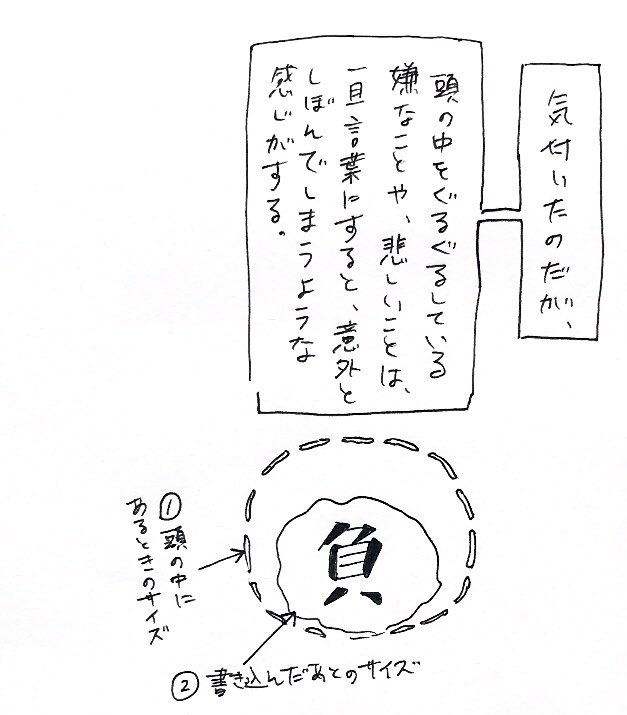 気付いたのだが、
頭の中をぐるぐるしている
嫌なことや、悲しいことは、
一旦言葉にすると、意外と
しぼんでしまうような
感じがする。
負
①頭の中に
あるときのサイズ
②書き込んだあとのサイズ